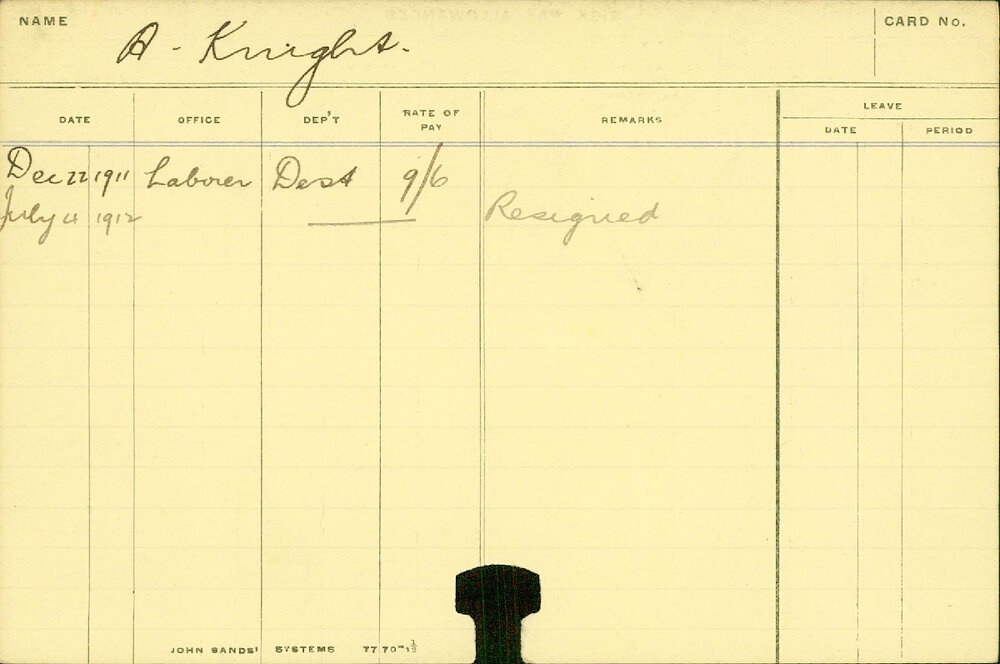 NAME
A. Knight.
CARD No.
DATE OFFICE DEP'T RATE OF PAY REMARKS LEAVE
DATE PERIOD
Dec 22 1911 Laborer Dest 9/6
July 4 1912 Resigned
JOHN SANDS' SYSTEMS